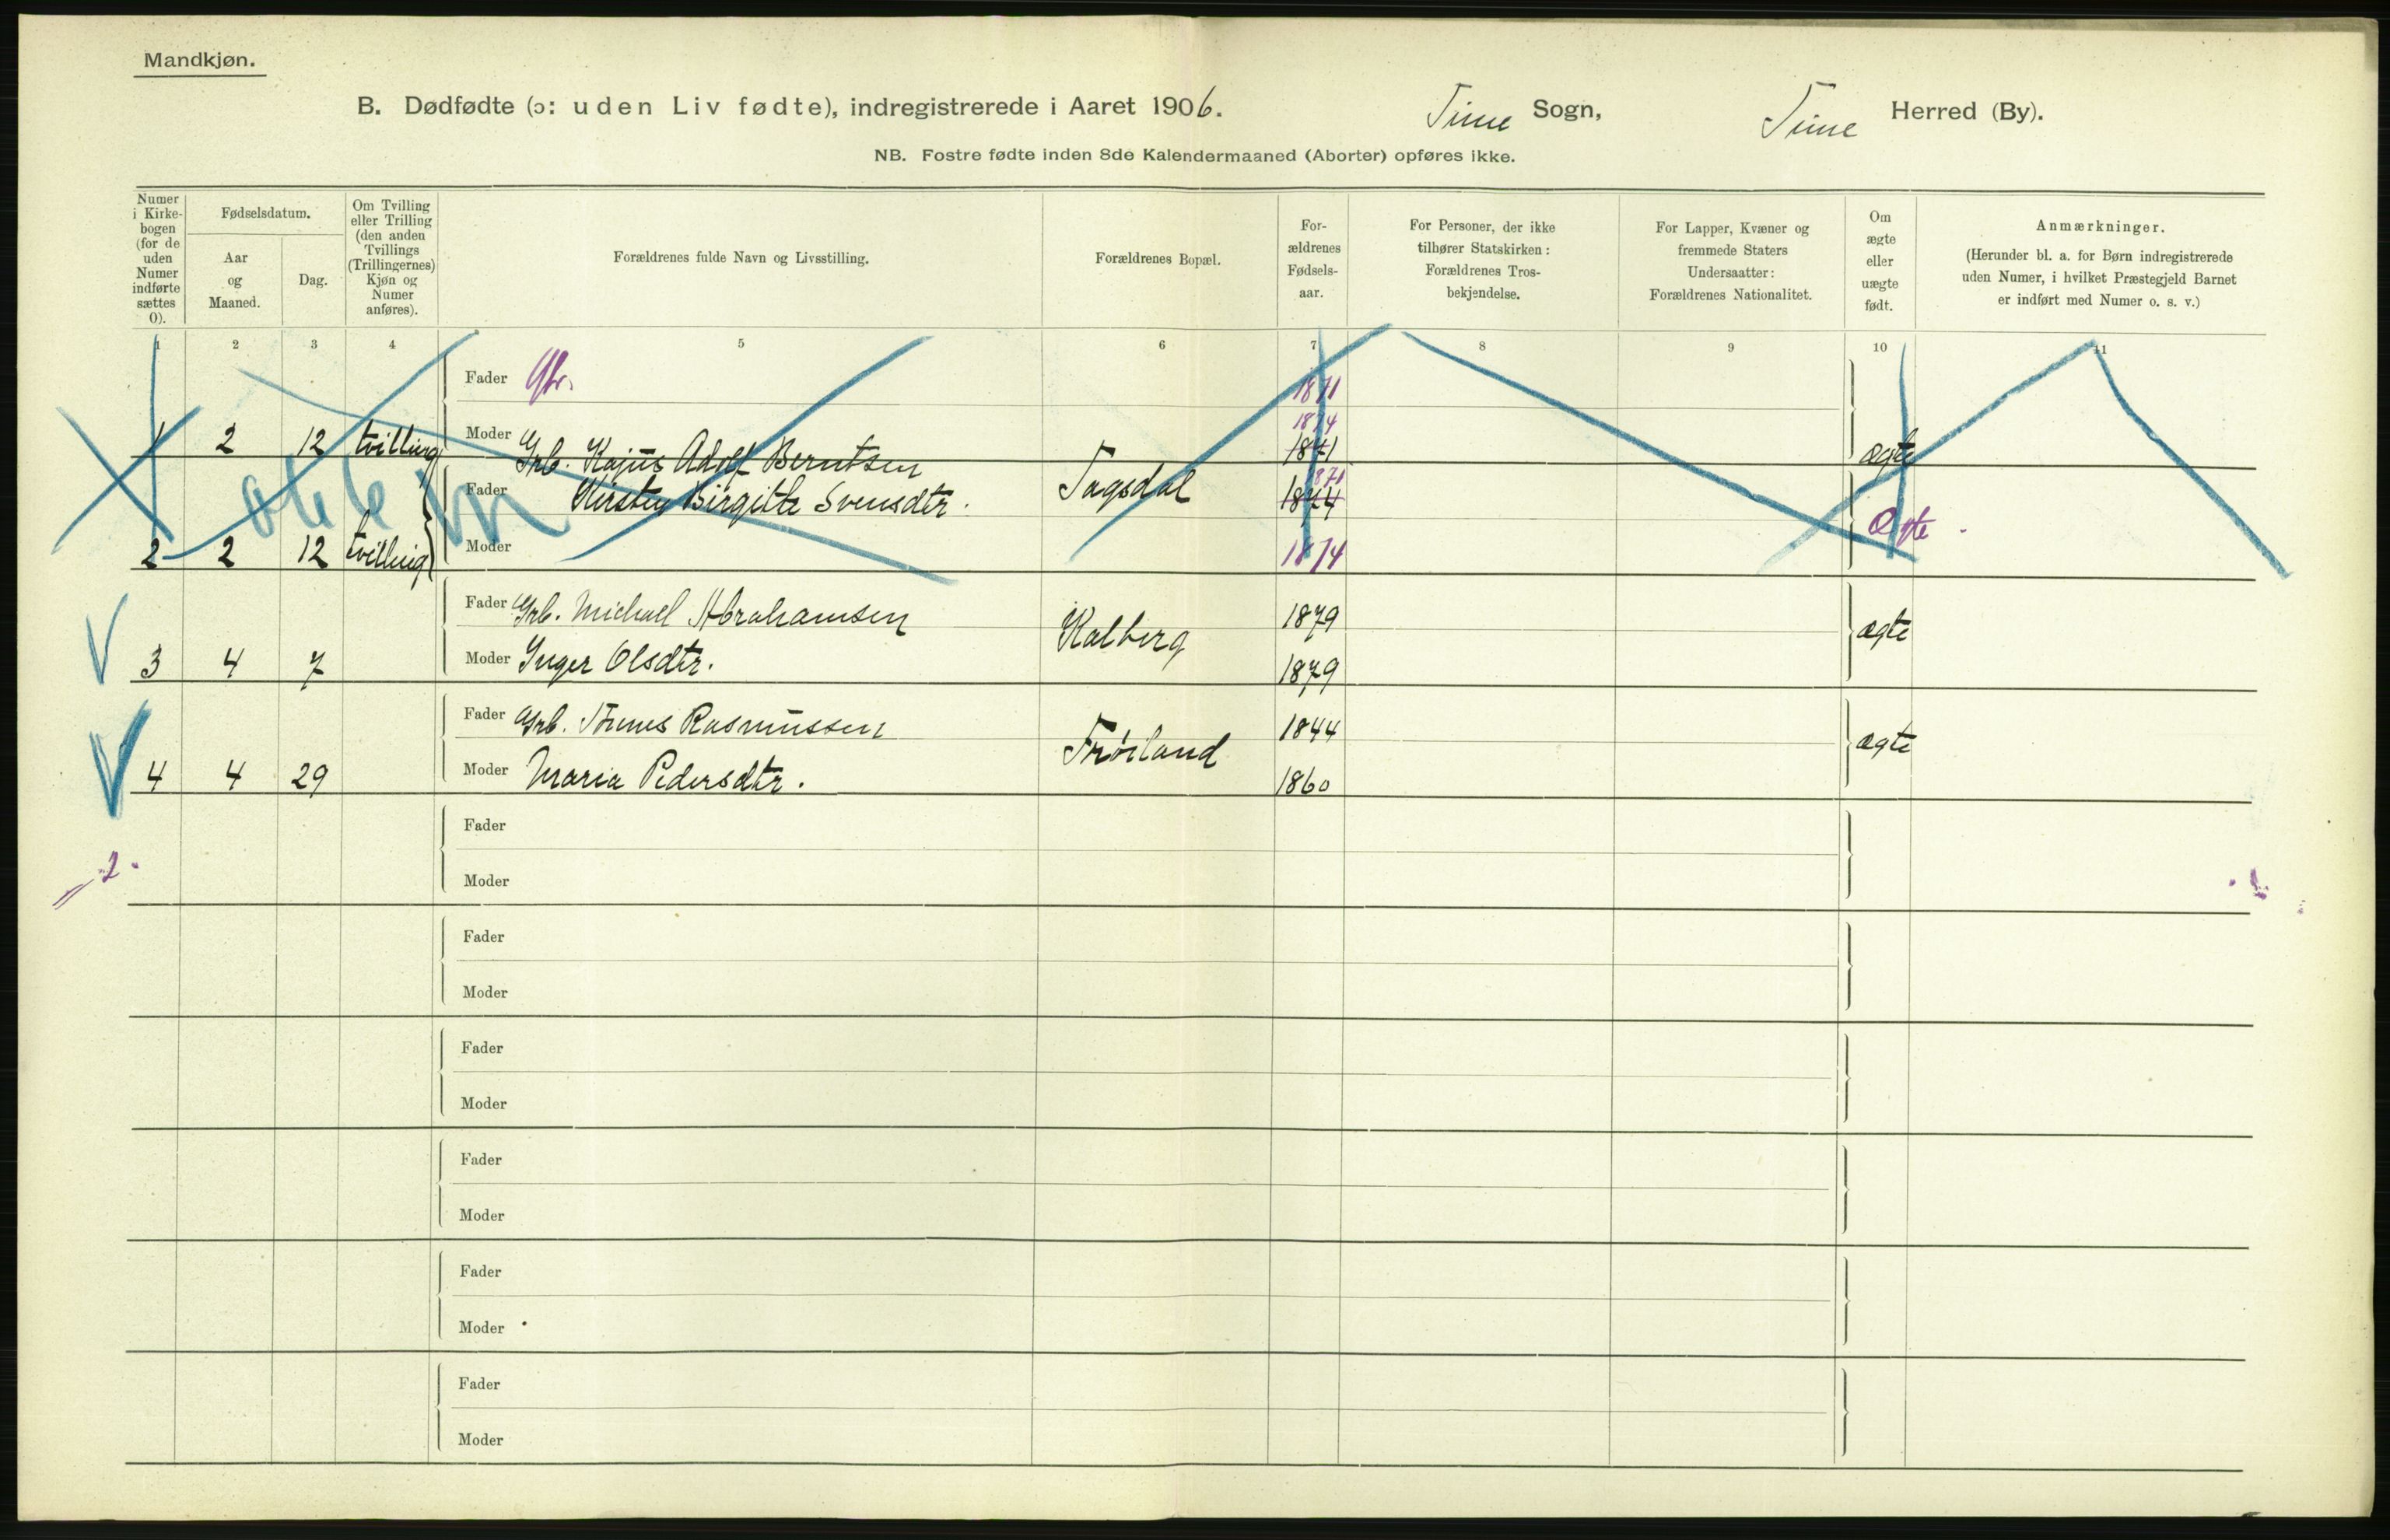 Mandkjøn.
B. Dødfødte (ɔ: uden Liv fødte), indregistrerede i Aaret 1906. Time Sogn, Time Herred (By).
NB. Fostre fødte inden 8de Kalendermaaned (Aborter) opføres ikke.
Numer i Kirke-bogen (for de uden Numer indførte sættes 0).
Fødselsdatum.
Aar og Maaned.
Dag.
Om Tvilling eller Trilling (den anden Tvillings (Trillingernes) Kjøn og Numer anføres).
Forældrenes fulde Navn og Livsstilling.
Forældrenes Bopæl.
For-ældrenes Fødsels-aar.
For Personer, der ikke tilhører Statskirken: Forældrenes Tros-bekjendelse.
For Lapper, Kvæner og fremmede Staters Undersaatter: Forældrenes Nationalitet.
Om ægte eller uægte født.
Anmærkninger.
(Herunder bl. a. for Børn indregistrerede uden Numer, i hvilket Præstegjeld Barnet er indført med Numer o. s. v.)
1 2 3 4 5 6 7 8 9 10 11
Fader 1871
1874
1 2 12 tvilling Moder Grb. Kajus Adolf Berntsen 1871 ægte
Fader Kirsten Birgitte Svensdtr. Tagsdal 1871 1874
2 2 12 tvilling Moder 1874 Ægte
Fader Grb. Michael Abrahamsen Kalberg 1879 ægte
3 4 7 Moder Inger Olsdtr. 1879
Fader Grb. Tønnes Rasmussen Frøiland 1844 ægte
4 4 29 Moder Maria Pedersdtr. 1860
Fader
2.
Moder
Fader
Moder
Fader
Moder
Fader
Moder
Fader
Moder
Fader
Moder